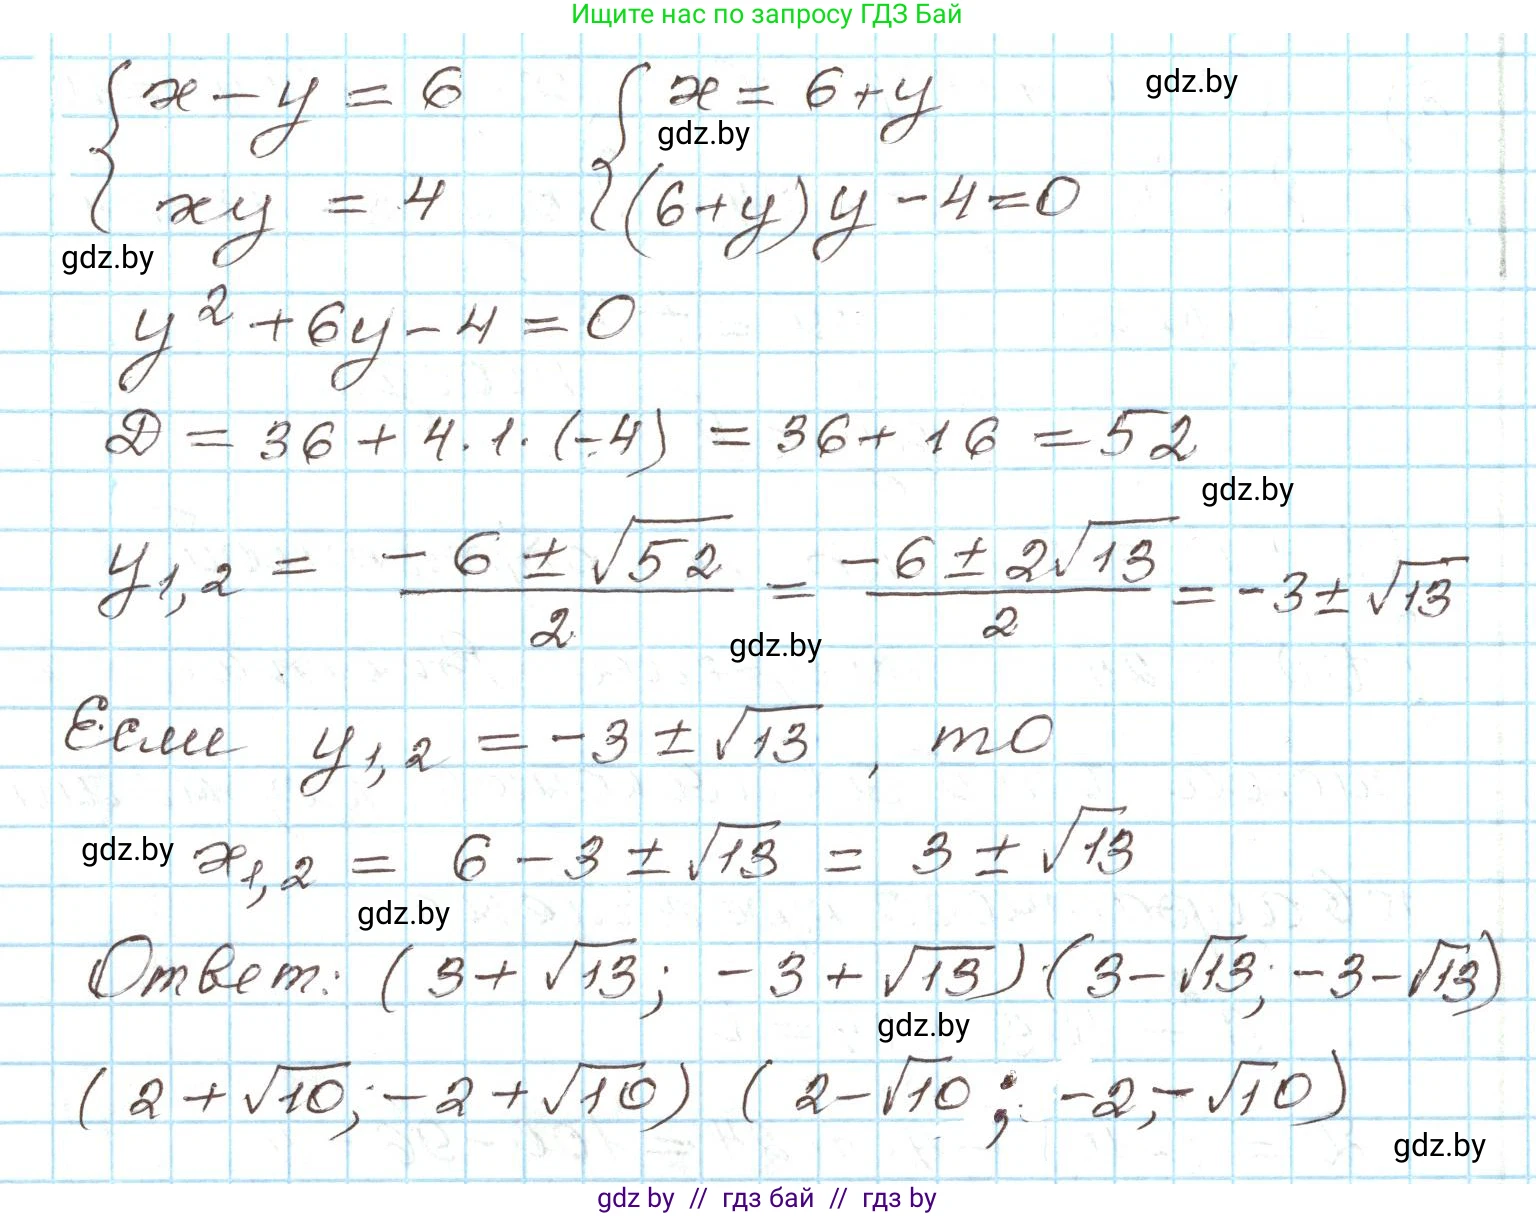 Ищите нас по запросу ГДЗ Бай
{ x - y = 6 { x = 6 + y gdz.by
gdz.by
{ xy = 4 { (6 + y) y - 4 = 0
gdz.by
y² + 6y - 4 = 0
D = 36 + 4 · 1 · (-4) = 36 + 16 = 52
gdz.by
y₁,₂ = (-6 ± √52)/2 = (-6 ± 2√13)/2 = -3 ± √13
gdz.by
Если y₁,₂ = -3 ± √13, то
gdz.by x₁,₂ = 6 - 3 ± √13 = 3 ± √13
gdz.by
Ответ: (3 + √13; -3 + √13) (3 - √13; -3 - √13)
gdz.by
(2 + √10; -2 + √10) (2 - √10; -2 - √10)
gdz.by
gdz by // гдз бай // гдз by